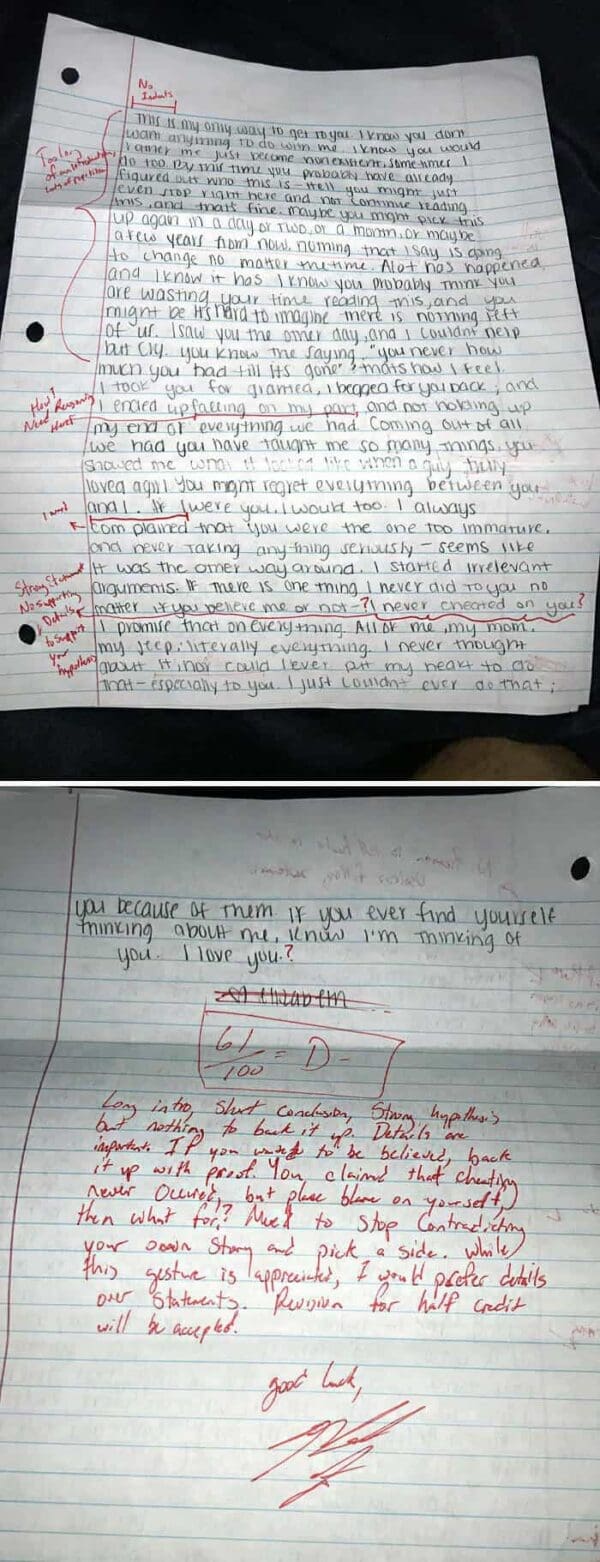 No
Indents
This is my only way to get to you I know you don't
want anything to do with me. I know you would
rather me just become nonexistent, sometimes I
do too. By this time you probably have already
figured out who this is - Hell you might just
even stop right here and not continue reading
this, and that's fine. maybe you might pick this
up again in a day or two, or a month, or maybe
a few years from now, nothing that I say is going
to change no matter the time. Alot has happened
and I know it has I know you probably think you
are wasting your time reading this, and you
might be it's hard to imagine there is nothing left
of us. I saw you the other day, and I couldnt help
but cry. you know the saying, "you never how
much you had till its gone" thats how I feel.
I took you for granted, I begged for you back, and
I ended up falling on my part, and not holding up
my end of everything we had. Coming out of all
we had you have taught me so many things, you
showed me what it looked like when a guy fully
loved a girl you might regret everything between you
and I. If I were you, I would too. I always
complained that you were the one too immature,
and never taking anything seriously - seems like
it was the other way around. I started irrelevant
arguments. If there is one thing I never did to you no
matter if you believe me or not-? I never cheated on you?
I promise that on everything. All of me, my mom,
my jeep, literally everything. I never thought
about it, nor could I ever put my heart to do
that - especially to you. I just couldnt ever do that;
Too long
of an introduction,
lots of repetition
How? Reasoning
Need
Strong Statement
No supporting
Details
to support
your
hypothesis
you because of them if you ever find yourself
thinking about me, know I'm thinking of
you. I love you.?
Elizabeth
61/100 = D-
Long intro, short conclusion, strong hypothesis
but nothing to back it up. Details are
important. If you want to be believed, back
it up with proof. You claimed that cheating
never occured, but place blame on yourself,
then what for? Need to stop contradicting
your own story and pick a side. While
this gesture is appreciated, I would prefer details
over statements. Revision for half credit
will be accepted.
good luck,